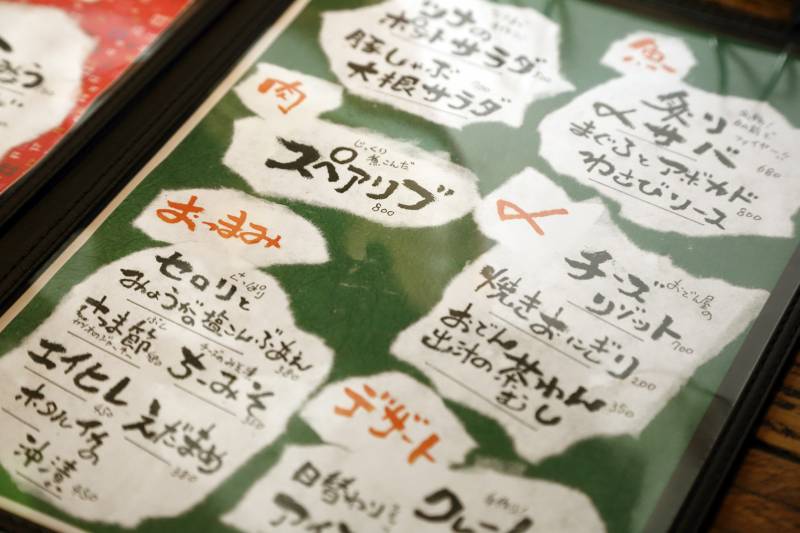 ツナの
ポテトサラダ
豚しゃぶ
大根サラダ
肉
じっくり
煮こんだ
スペアリブ
800
おつまみ
さっぱり
セロリと
みょうがの塩こんぶあえ
380
さつま節
ちーみそ
エイヒレ
450
えだまめ
380
ホタルイカの
沖漬
450
魚
炙り
〆サバ
680
まぐろとアボカド
わさびソース
800
〆
おでん屋の
チーズ
リゾット
700
焼きおにぎり
200
おでん
出汁の茶わん
むし
350
デザート
日替わり
アイ
クレー